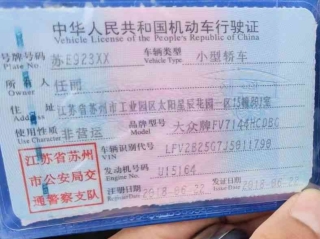 中华人民共和国机动车行驶证
Vehicle License of the People's Republic of China
号牌号码 苏E923XX 车辆类型 小型轿车
Plate No. Vehicle Type
所有人 任丽
Owner
住址 江苏省苏州市工业园区太阳星辰花园一区15幢
Address
使用性质 非营运 品牌型号 大众牌FV7144HCDBG
Use Character Model
车辆识别代号 LFV2B25G7J5011798
VIN
发动机号码 U15164
Engine No.
江苏省苏州
市公安局交
通警察支队
注册日期 2018-06-22 发证日期 2018-06-22
Register Date Issue Date